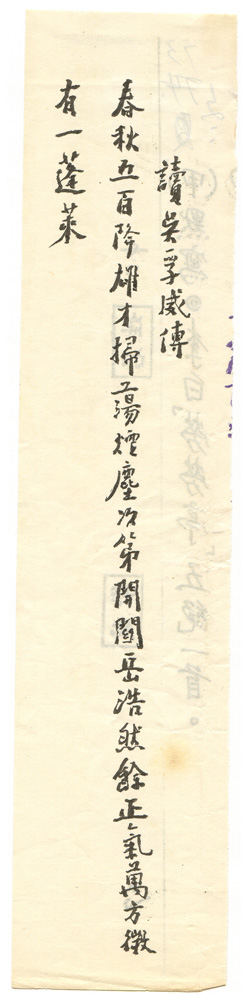 讀吳孚威傳
春秋五百降雄才掃蕩煙塵次第開關岳浩然餘正氣萬方微
有一蓬萊